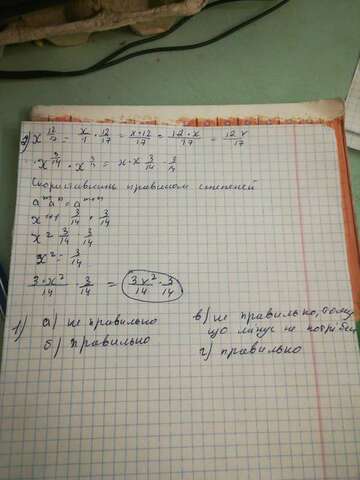 2) x 12/17 = x/1 · 12/17 = x·12/17 = 12·x/17 = 12x/17
x 3/14 · x 3/14 = x·x 3/14 · 3/14
Скориставшись правилом степеней
aᵐaⁿ = aᵐ⁺ⁿ
x¹⁺¹ 3/14 · 3/14
x² 3/14 · 3/14
x² = 3/14
3·x²/14 · 3/14 = 3x²/14 · 3/14
1) а) не правильно
б) правильно
в) не правильно, тому
що мінус не потрібен
г) правильно